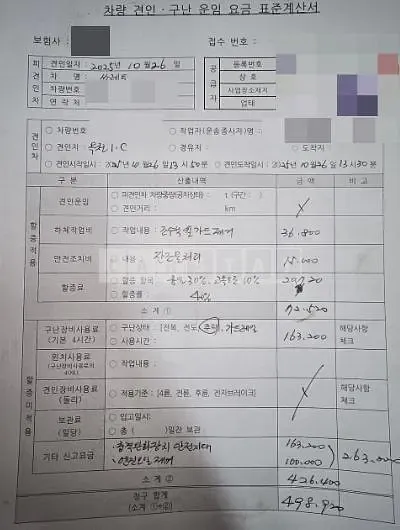 차량 견인 · 구난 운임 요금 표준계산서
보험사 :
접수 번호 :
피견인차
견인일자 : 2025년 10월 26일
차 명 :
차량번호
연 락 처
공급자
등록번호
상 호
사업장소재지
업태
견인차
○ 차량번호
○ 작업자(운송종사자)명 :
○ 견인지 : 부천 I.C
○ 경유지 :
○ 도착지 :
○ 견인시작일시 : 2025년 10월 26일 13시 50분
○ 견인도착일시 : 2025년 10월 26일 13시 30분
구 분
산출내역
금 액
비 고
할증적용
견인운임
○ 피견인차 차량중량(공차상태) : t, (구간 : )
○ 견인거리 : km
하체작업비
○ 작업내용 :
36.800
안전조치비
○ 내용 : 잔존물처리
15.000
할증료
○ 할증 항목 : 휴일 30%,
○ 할증률 : 40%
20720
소 계 ①
72.520
할증미적용
구난장비사용료 (기본 4시간)
○ 구난상태 : [전복, 전도, 추락, 가드레일
○ 사용시간 :
163.200
해당사항 체크
윈치사용료
○ 작업내용 :
견인장비사용료 (돌리)
○ 적용기준 : [4륜, 전륜, 후륜, 전자브레이크]
해당사항 체크
보관료 (일당)
○ 입고일시:
○ 총 ( )일간 보관
기타 신고요금
163.200
100.000
263.000
소 계 ②
426.400
청구 합계 (소계 ①+②)
498.920